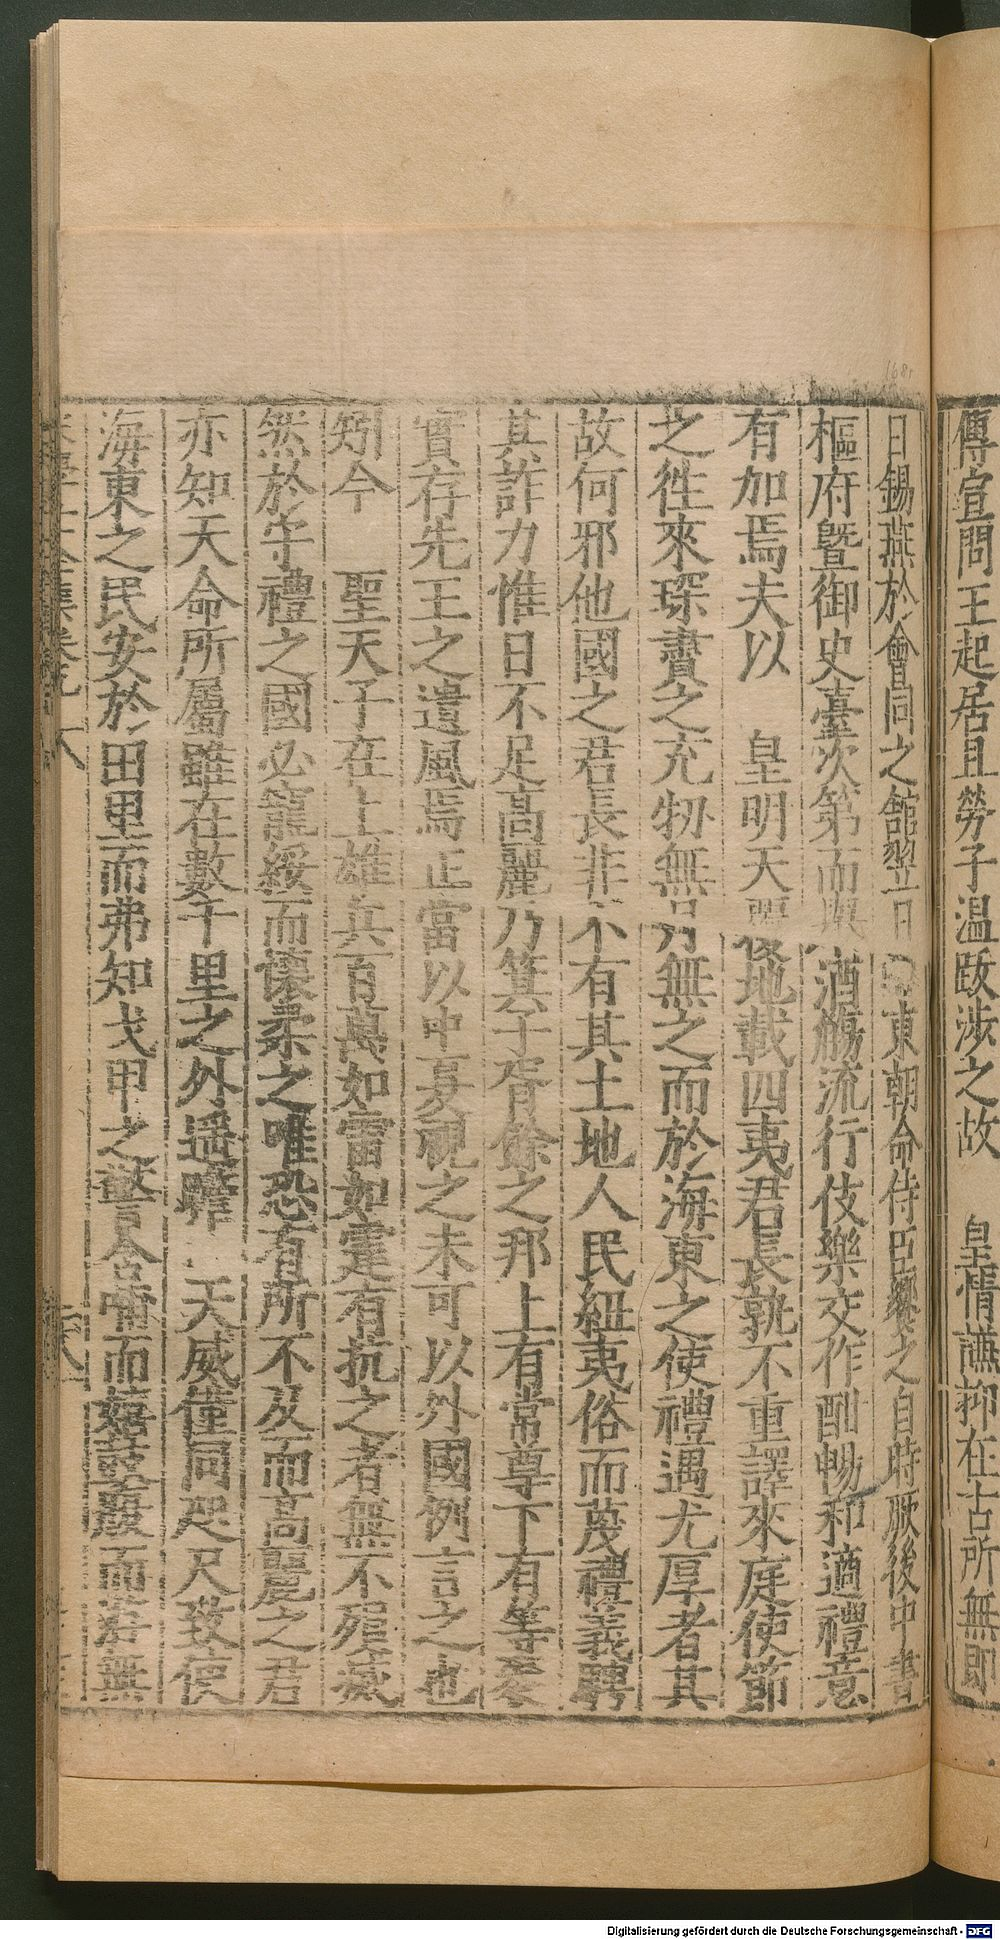 傳宣問王起居且勞子温跋涉之故　皇情謙抑在古所無即
日錫燕於會同之館翌日東朝命侍臣饗之自時厥後中書
樞府曁御史臺次第而酒觴流行伎樂交作酣暢和適禮意
有加焉夫以　皇明天地載四夷君長孰不重譯來庭使節
之徃來琛賮之充牣無月無之而於海東之使禮遇尤厚者其
故何邪他國之君長非不有其土地人民紐夷俗而蔑禮義騁
其詐力惟日不足高麗乃箕子胥餘之邦上有常尊下有等衰
實存先王之遺風焉正當以中夏視之未可以外國例言之也
矧今　聖天子在上雄兵百萬如雷如霆有抗之者無不殄滅
然於守禮之國必寵綏而懷柔之唯恐有所不及而高麗之君
亦知天命所屬雖在數千里之外遥瞻　天威僅同咫尺致使
海東之民安於田里而弗知戈甲之警含哺而嬉鼓腹而若無
168r
Digitalisierung gefördert durch die Deutsche Forschungsgemeinschaft - DFG